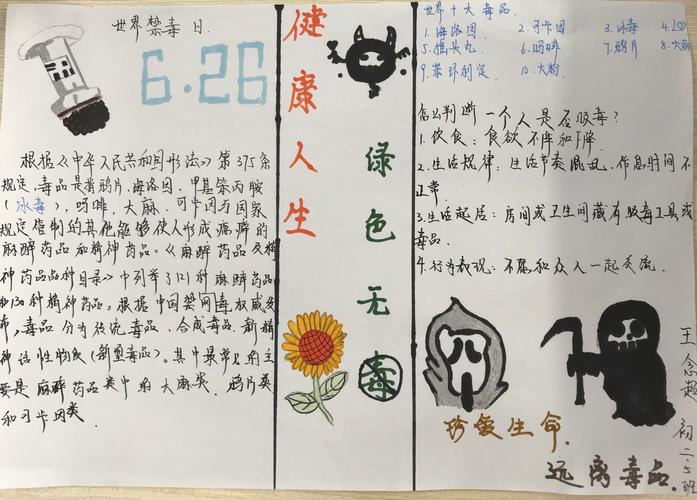 世界禁毒日.
6.26
根据《中华人民共和国刑法》第375条
规定,毒品是指鸦片、海洛因、甲基苯丙胺
(冰毒),吗啡,大麻、可卡因与国家
规定管制的其他能够使人形成瘾癖的
麻醉药品和精神药品。《麻醉药品及精
神药品品种目录》中列举了121种麻醉药品
和130种精神药品。根据中国禁网毒权威发
布,毒品分为传统毒品、合成毒品、新精
神活性物质(新型毒品)。其中最常见的主
要是麻醉药品类中的大麻类、鸦片类
和可卡因类.
健康人生
绿色无毒
世界十大毒品。
1.海洛因 2.可卡因 3.冰毒 4.LSD
5.摇头丸 6.吗啡 7.鸦片 8.大麻
9.苯环利定 10.大粉
怎么判断一个人是否吸毒?
1.饮食:食欲不降和下降
2.生活规律:生活节奏混乱、作息时间不
正常.
3.生活起居:房间或卫生间藏有吸毒工具或
毒品.
4.行为表现:不愿和众人一起交流.
珍爱生命.
远离毒品.
王念超 初二.5班